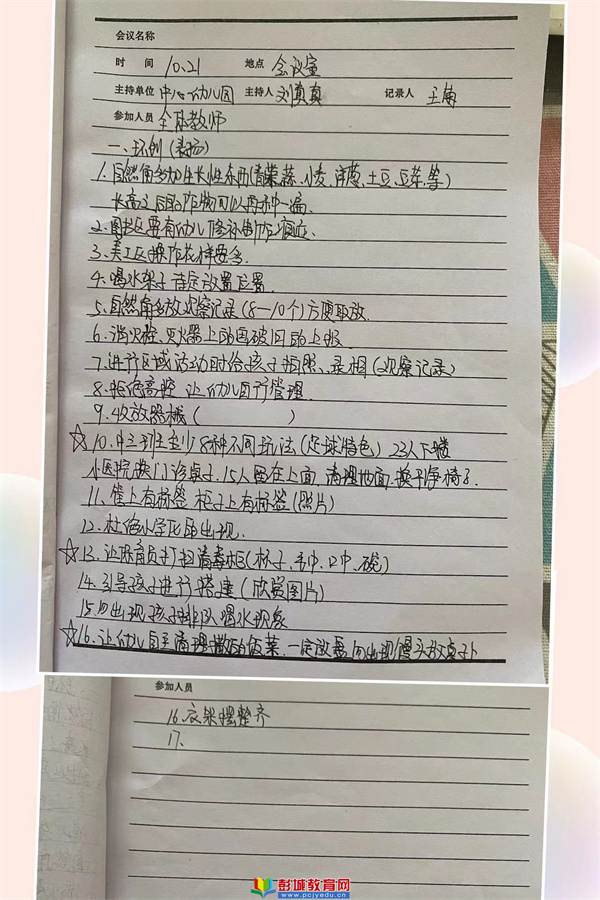 会议名称
时 间 10.21 地点 会议室
主持单位 中心幼儿园 主持人 刘真真 记录人 王敏
参加人员 全体教师
一、环创(表扬)
1. 自然角多加生长性东西(青菜、蒜、小麦、洋葱、土豆、豆芽,等)
长高之后的作物可以再种一遍.
2. 图书区要有幼儿修补制作痕迹.
3. 美工区操作花样要多.
4. 喝水架子 固定放置位置.
5. 自然角多放观察记录(8—10个)方便取放.
6. 消火栓、灭火器上的图破旧的上报
7. 进行区域活动时给孩子拍照、录相(观察记录)
8. 降低高控 让幼儿自行管理.
9. 收放器械( )
☆10. 中三班至少8种不同玩法(足球特色) 23人下楼
小医院 门诊桌子.15人围在上面.清理地面.换干净椅子.
11. 筐上有标签 柜子上有标签(照片)
12. 杜绝小学化 出现.
☆13. 让保育员打扫消毒柜(杯子、毛巾、口巾、碗)
14. 引导孩子进行搭建(欣赏图片)
15. 勿出现孩子排队喝水现象
☆16. 让幼儿自主清理撒的饭菜.一定放盘 勿出现馒头放桌子上
参加人员
16. 衣架摆整齐
17.
彭城教育网
www.pcjyedu.cn